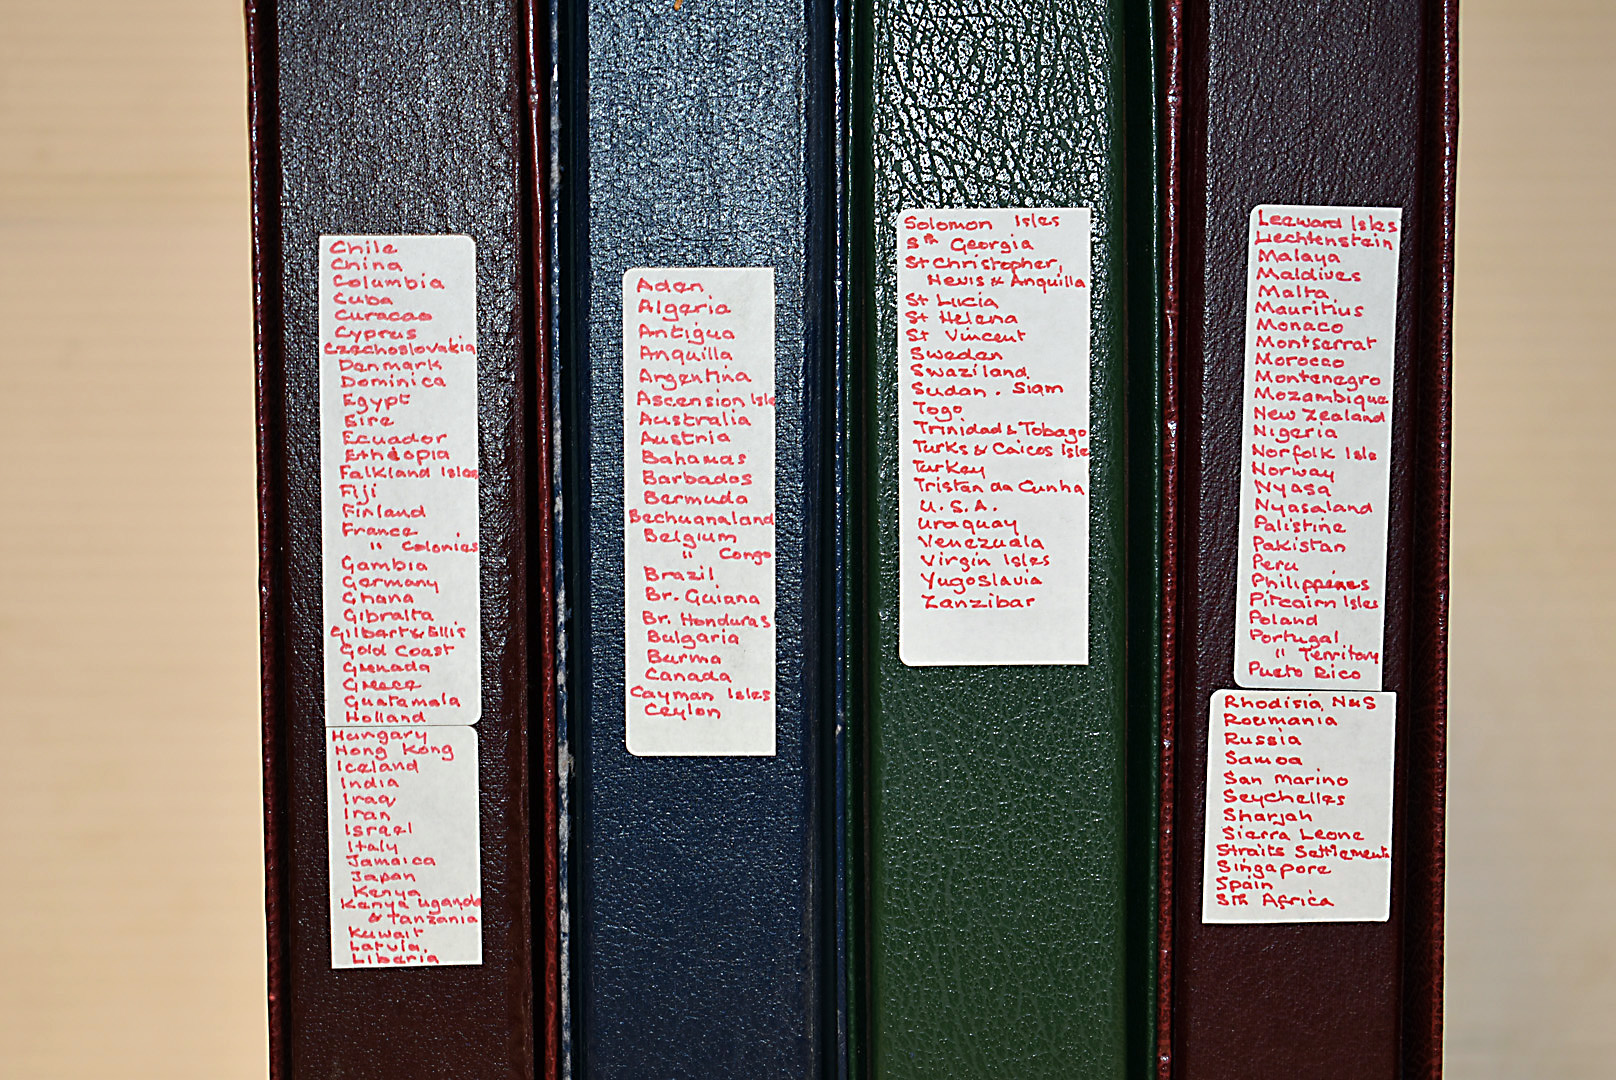 Chile
China
Columbia
Cuba
Curacao
Cyprus
Czechoslovakia
Denmark
Dominica
Egypt
Eire
Ecuador
Ethiopia
Falkland Isles
Fiji
Finland
France
" Colonies
Gambia
Germany
Ghana
Gibralta
Gilbert & Ellis
Gold Coast
Grenada
Greece
Guatamala
Holland
Hungary
Hong Kong
Iceland
India
Iraq
Iran
Israel
Italy
Jamaica
Japan
Kenya
Kenya Uganda
& Tanzania
Kuwait
Latvia.
Liberia
Aden
Algeria
Antigua
Anquilla
Argentina
Ascension Isle
Australia
Austria
Bahamas
Barbados
Bermuda
Bechuanaland
Belgium
" Congo
Brazil
Br. Guiana
Br. Honduras
Bulgaria
Burma
Canada
Cayman Isles
Ceylon
Solomon Isles
Sth Georgia
St Christopher,
Nevis & Anquilla
St Lucia
St Helena
St Vincent
Sweden
Swaziland
Sudan. Siam
Togo
Trinidad & Tobago
Turks & Caicos Isle
Turkey
Tristan da Cunha
U.S.A.
Uraguay
Venezuala
Virgin Isles
Yugoslavia
Zanzibar
Leeward Isles
Liechtenstein
Malaya
Maldives
Malta
Mauritius
Monaco
Montserrat
Morocco
Montenegro
Mozambique
New Zealand
Nigeria
Norfolk Isle
Norway
Nyasa
Nyasaland
Palistine
Pakistan
Peru
Philippenes
Pitcairn Isles
Poland
Portugal
" Territory
Pueto Rico
Rhodisia N&S
Roumania
Russia
Samoa
San Marino
Seychelles
Sharjah
Sierra Leone
Straits Settlements
Singapore
Spain
Sth Africa